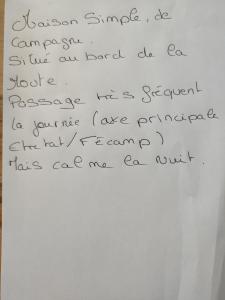 Maison Simple, de
Campagne.
Situé au bord de la
Route.
Passage très fréquent
la journée (axe principale
Etretat/Fécamp)
Mais calme la Nuit.